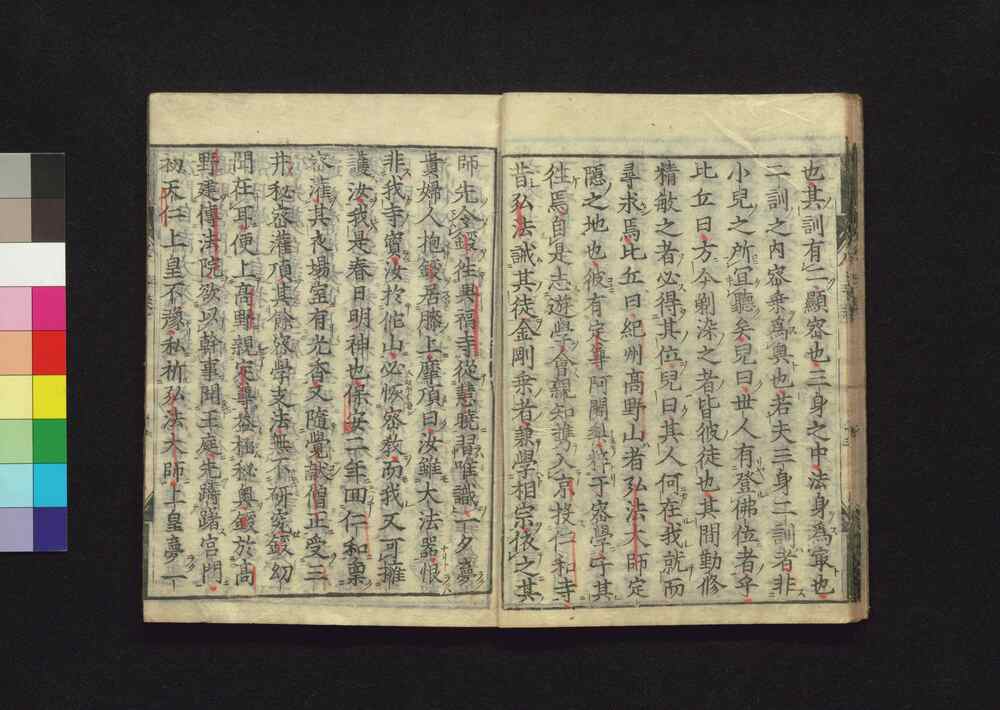 也其訓有二顯密也三身之中法身爲最也
二訓之內密乗爲奥也若夫三身二訓者非
小兒之所冝聽矣兒曰世人有登佛位者乎
比丘曰方今剃染之者皆彼徒也其間勤修
精敏之者必得其位兒曰其人何在我就而
尋求焉比丘曰紀州高野山者弘法大師定
隱之地也彼有定尊阿闍梨於于密學于其
徃焉自是志遊學會親知携入京投仁和寺
昔弘法誡其徒金剛乗者兼學相宗依之其
師先令鍐徃興福寺從慧曉習唯識一夕夢
貴婦人抱鍐居膝上摩頂曰汝雖大法器恨
非我寺實汝於佗山必恢密敎而我又可擁
護汝我是春日明神也保安二年回仁和稟
密灌其夜塲室有光杳又隨覺誐僧正受三
井秘密灌頂其餘密學支法無不研究鍐幼
聞在耳便上高野親定尊益極秘奥鍐於高
野建傳法院欲以幹事聞王庭先躊躇宮門
初天仁上皇不豫私祈弘法大師上皇夢一